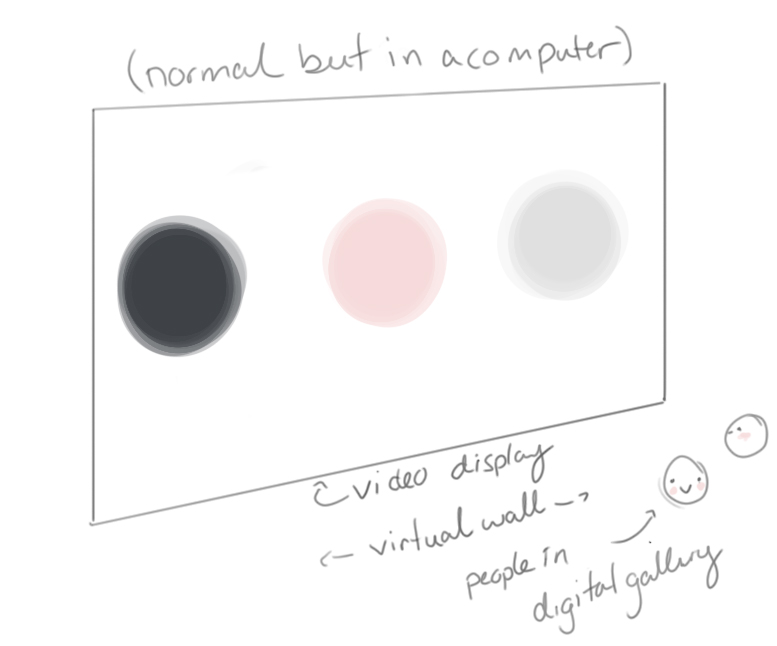 (normal but in a computer)
video display
virtual wall
people in
digital gallery